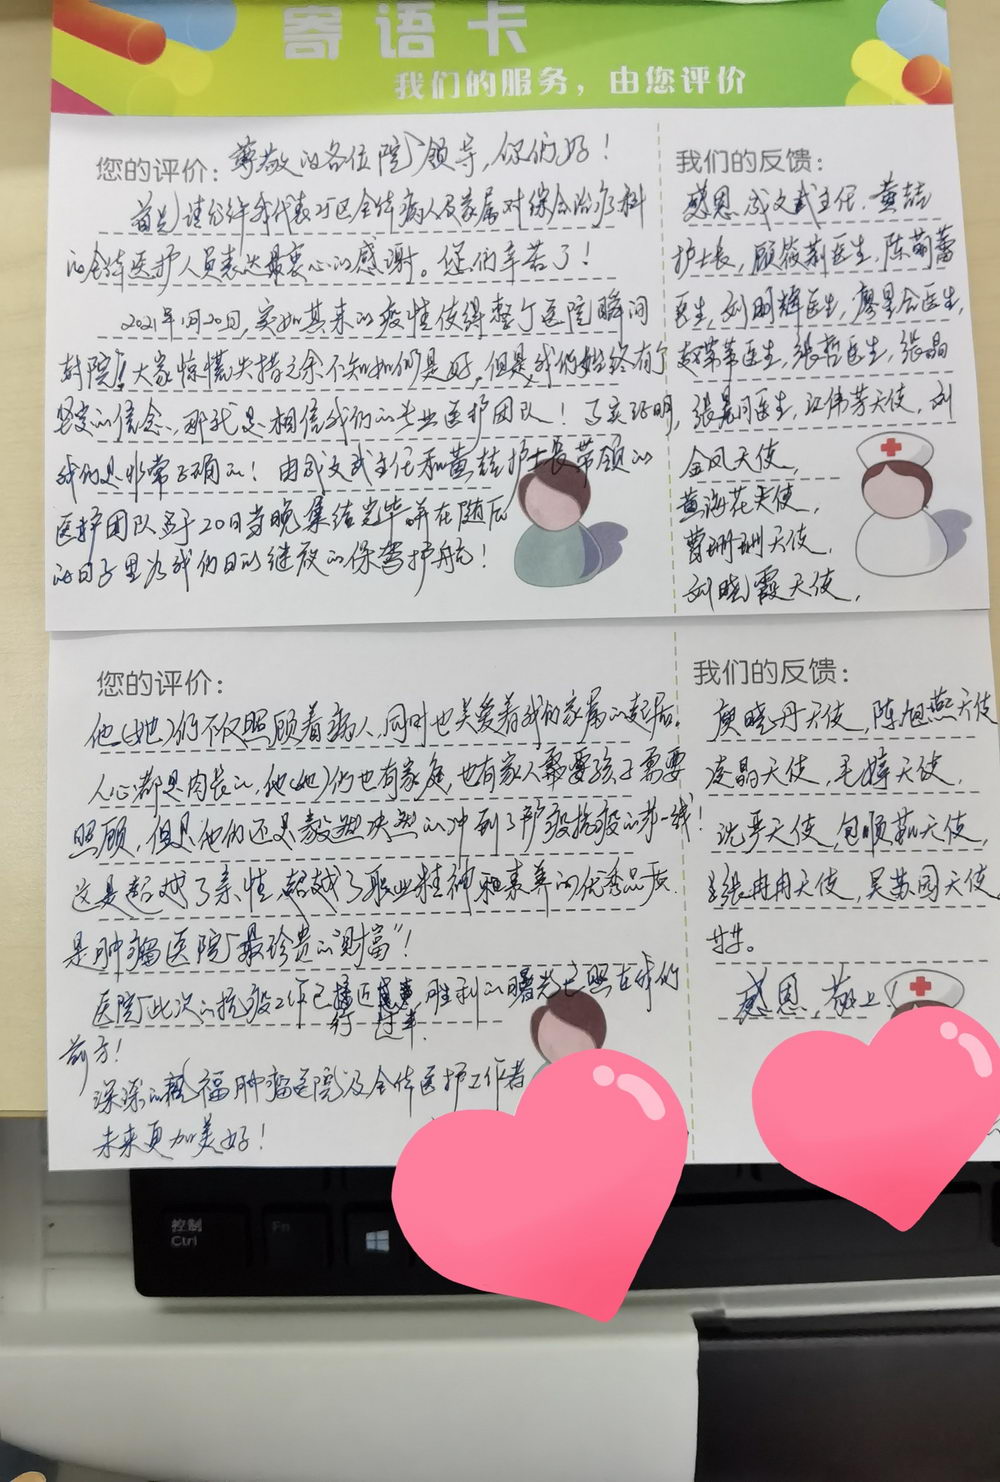 寄语卡
我们的服务，由您评价
您的评价：尊敬的各位院领导，你们好！
首先请允许我代表25区全体病人及家属对综合治疗科
的全体医护人员表达最衷心的感谢。您们辛苦了！
2021年1月20日，突如其来的疫情使得整个医院瞬间
封院！大家惊慌失措之余不知如何是好，但是我们始终有了
坚定的信念，那就是相信我们的专业医护团队！事实证明，
我们是非常正确的！由成文武主任和黄喆护士长带领的
医护团队于20日当晚集结完毕并在随后
的日子里为我们日的继夜的保驾护航！
我们的反馈：
感恩成文武主任、黄喆
护士长，顾筱莉医生，陈萌蕾
医生，刘明辉医生，廖星合医生，
赵苇苇医生，张哲医生，张晶
张晨同医生，江伟芳天使，刘
金凤天使，
黄海花天使，
曹珊珊天使，
刘晓霞天使，
您的评价：
他（她）们不仅照顾着病人，同时也关爱着我们家属的起居。
人心都是肉长的，他（她）们也有家庭，也有家人需要孩子需要
照顾，但是他们还是毅然决然的冲到了防疫抗疫的第一线！
这是超越了亲情，超越了职业精神和素养的优秀品质，
是肿瘤医院最珍贵的“财富”！
医院此次的抗疫工作已接近尾声，胜利的曙光已照在我们
行 过半
前方！
深深的祝福肿瘤医院及全体医护工作者
未来更加美好！
我们的反馈：
庾晓丹天使，陈旭燕天使
凌晶天使，毛婷天使，
沈亚天使，包顺茹天使，
张冉冉天使，吴苏园天使
廿廿。
感恩，敬上
控制
Ctrl
Fn